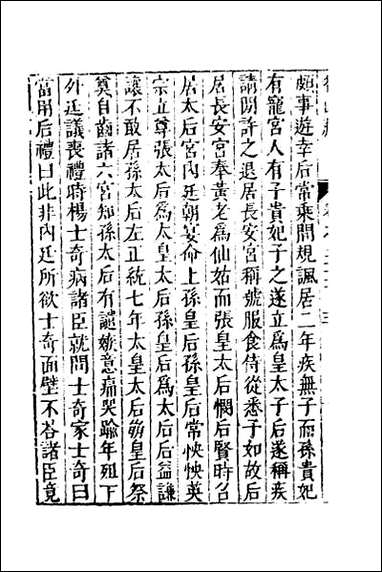 頗事遊幸后常乘間規諷居二年疾無子而孫貴妃
有寵宮人有子貴妃子之遂立爲皇太子后遂稱疾
請閒許之退居長安宮稱號服食侍從悉予如故后
居長安宮奉黃老爲仙姑而張皇太后憫后賢時召
居太后宮內廷朝宴命上孫皇后孫皇后常怏怏英
宗立尊張太后爲太皇太后孫皇后爲太后后益謙
讓不敢居孫太后左正統七年太皇太后崩皇后祭
奠自齒諸六宮知孫太后有譴嫉意痛哭踰年殂下
外廷議喪禮時楊士奇病諸臣就問士奇家士奇曰
當用后禮曰此非內廷所欲士奇面壁不答諸臣竟